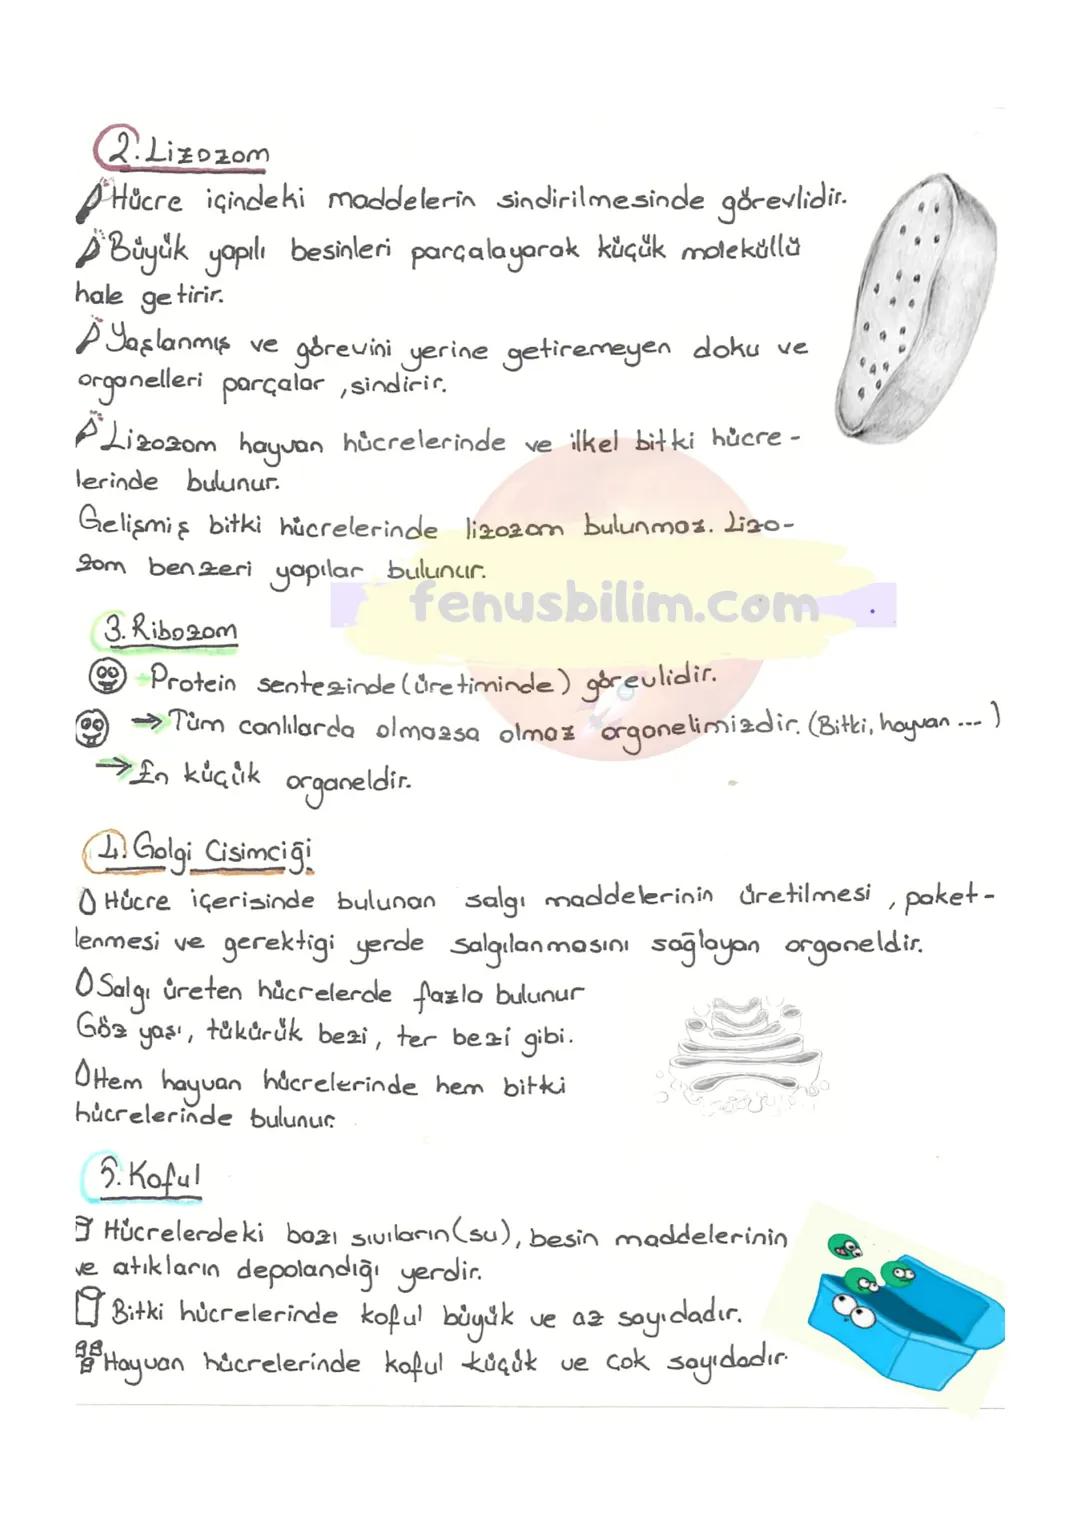 2. Lizozom
Hücre içindeki maddelerin sindirilmesinde görevlidir.
Büyük yapılı besinleri parçalayarak küçük moleküllü
hale getirir.
Yaşlanmış ve görevini yerine getiremeyen doku ve
organelleri parçalar, sindirir.
Lizozom hayvan hücrelerinde ve ilkel bitki hücre-
lerinde bulunur.
Gelişmiş bitki hücrelerinde lizozom bulunmaz. Lizo-
zom benzeri yapılar bulunur.
fenusbilim.com
3. Ribozom
Protein sentezinde (üretiminde) görevlidir.
→ Tüm canlılarda olmazsa olmaz organelimizdir. (Bitki, hayvan ...)
→ En küçük organeldir.
4. Golgi Cisimciği
Hücre içerisinde bulunan salgı maddelerinin üretilmesi, paket-
lenmesi ve gerektigi yerde salgılanmasını sağlayan organeldir.
Salgı üreten hücrelerde fazla bulunur
Göz yaşı, tükürük bezi, ter bezi gibi.
Hem hayvan hücrelerinde hem bitki
hücrelerinde bulunur.
5. Koful
Hücrelerdeki bazı sıvıların(su), besin maddelerinin
ve atıkların depolandığı yerdir.
Bitki hücrelerinde koful büyük ve az sayıdadır.
Hayvan hücrelerinde koful küçük ve çok sayıdadır.